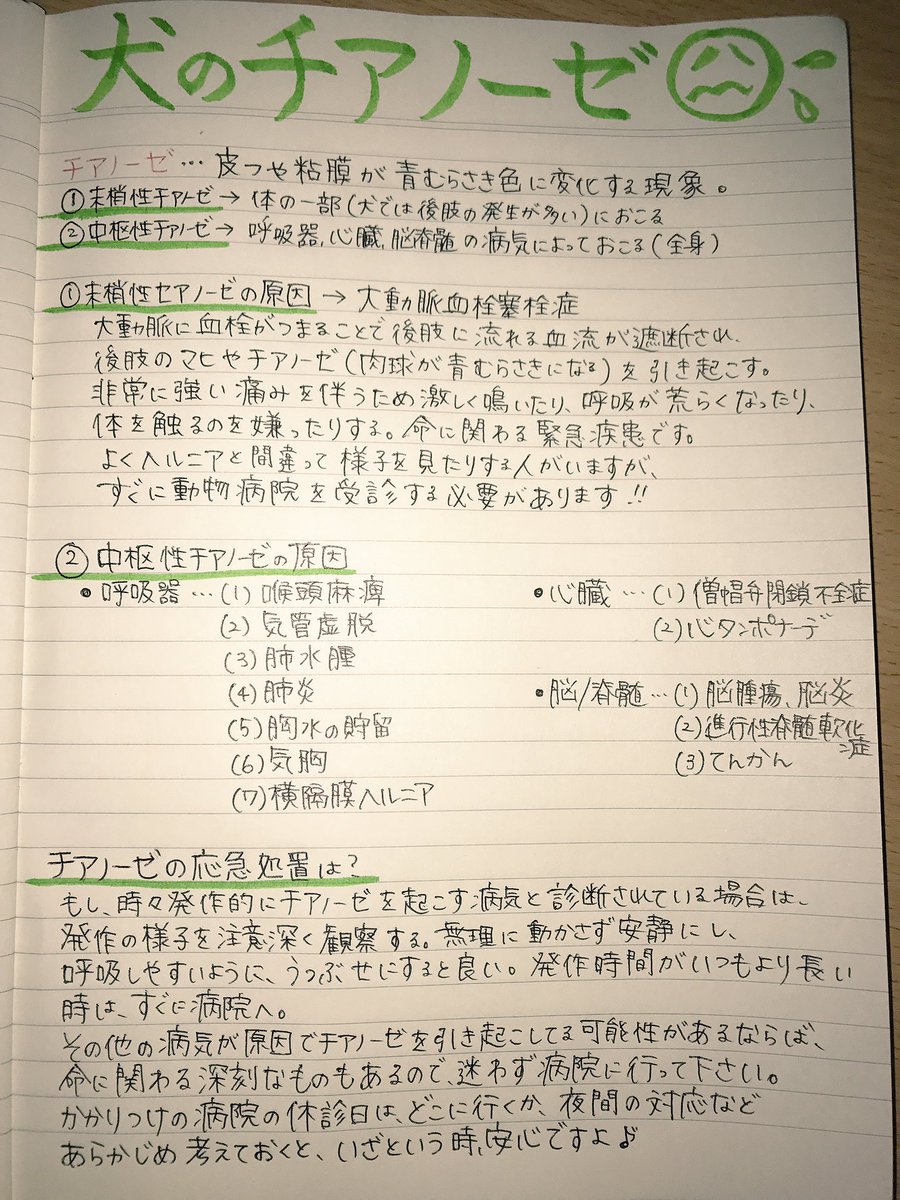 犬のチアノーゼ
チアノーゼ… 皮つや粘膜が青むらさき色に変化する現象。
①末梢性チアノーゼ→ 体の一部(犬では後肢の発生が多い)におこる
②中枢性チアノーゼ→ 呼吸器、心臓、脳脊髄の病気によっておこる(全身)
①末梢性セアノーゼの原因 → 大動脈血栓塞栓症
大動脈に血栓がつまることで後肢に流れる血流が遮断され、
後肢のマヒやチアノーゼ(肉球が青むらさきになる)を引き起こす。
非常に強い痛みを伴うため激しく鳴いたり、呼吸が荒らくなったり、
体を触るのを嫌ったりする。命に関わる緊急疾患です。
よくヘルニアと間違って様子を見たりする人がいますが、
すぐに動物病院を受診する必要があります!!
②中枢性チアノーゼの原因
•呼吸器…(1)喉頭麻痺
(2)気管虚脱
(3)肺水腫
(4)肺炎
(5)胸水の貯留
(6)気胸
(7)横隔膜ヘルニア
•心臓…(1)僧帽弁閉鎖不全症
(2)心タンポナーデ
•脳/脊髄…(1)脳腫瘍、脳炎
(2)進行性脊髄軟化症
(3)てんかん
チアノーゼの応急処置は?
もし、時々発作的にチアノーゼを起こす病気と診断されている場合は、
発作の様子を注意深く観察する。無理に動かさず安静にし、
呼吸しやすいように、うつぶせにすると良い。発作時間がいつもより長い
時は、すぐに病院へ。
その他の病気が原因でチアノーゼを引き起こしてる可能性があるならば、
命に関わる深刻なものもあるので、迷わず病院に行って下さい。
かかりつけの病院の休診日は、どこに行くか、夜間の対応など
あらかじめ考えておくと、いざという時、安心ですよ♪